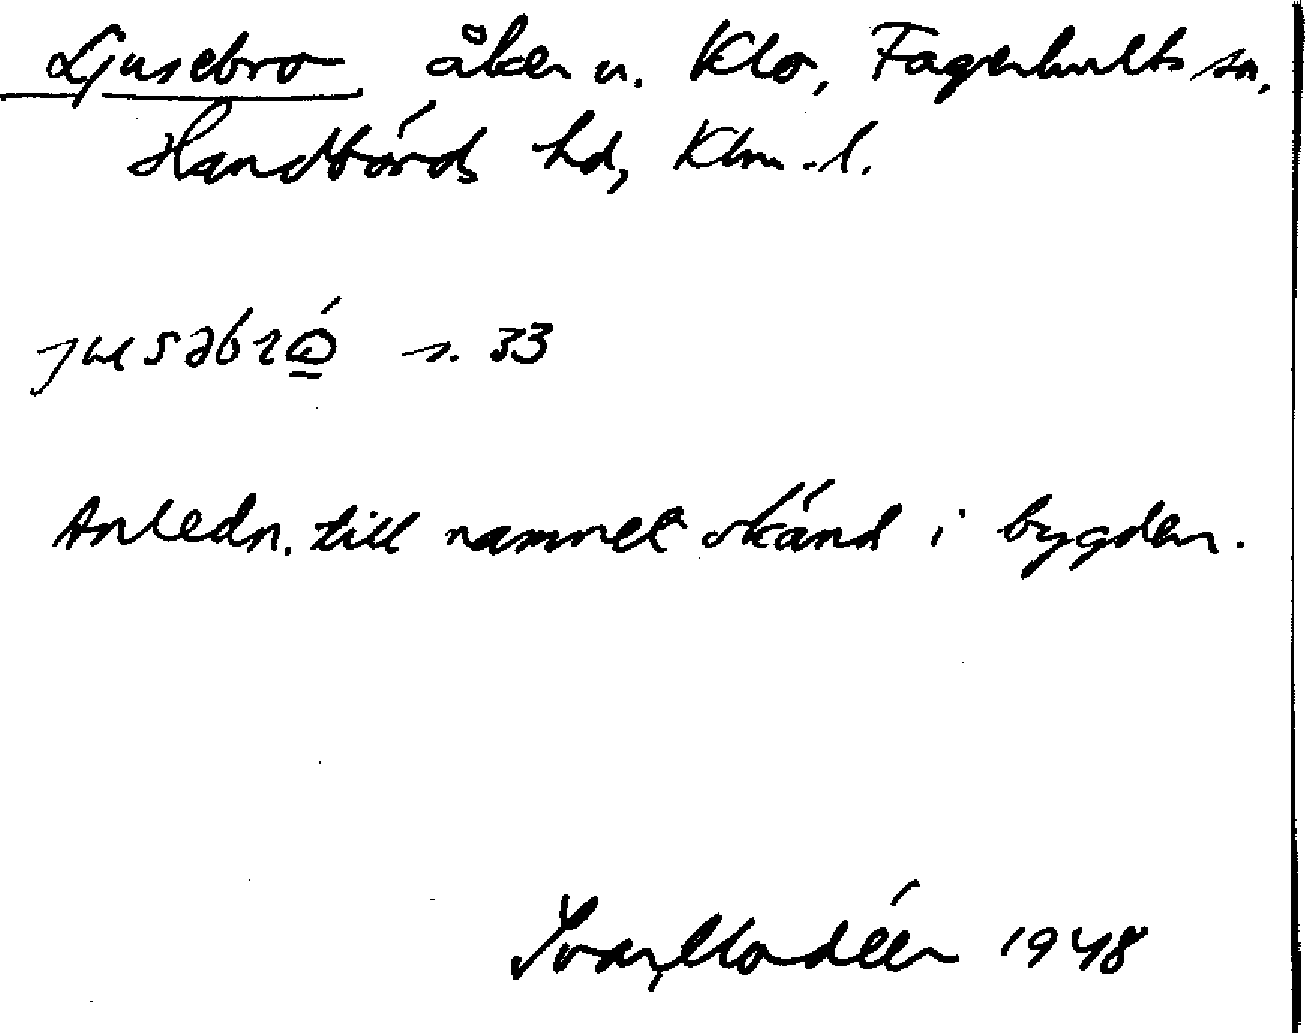 Ljusebro åker u. Klo, Fagerhults sn,
Handbörds hd, Klm. l.
s. 33
Anledn. till namnet okänd i bygden.
Ivar Modéer 1948